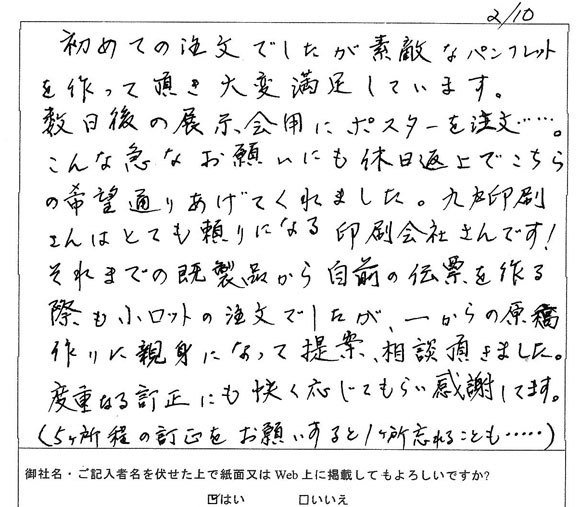 2/10
初めての注文でしたが素敵なパンフレット
を作って頂き大変満足しています。
数日後の展示会用にポスターを注文……。
こんな急なお願いにも休日返上でこちら
の希望通りあげてくれました。九戸印刷
さんはとても頼りになる印刷会社さんです!
それまでの既製品から自前の伝票を作る
際も小ロットの注文でしたが、一からの原稿
作りに親身になって提案、相談頂きました。
度重なる訂正にも快く応じてもらい感謝してます。
(5ヶ所程の訂正をお願いすると1ヶ所忘れることも……)
御社名・ご記入者名を伏せた上で紙面又は Web 上に掲載してもよろしいですか?
☑はい □いいえ